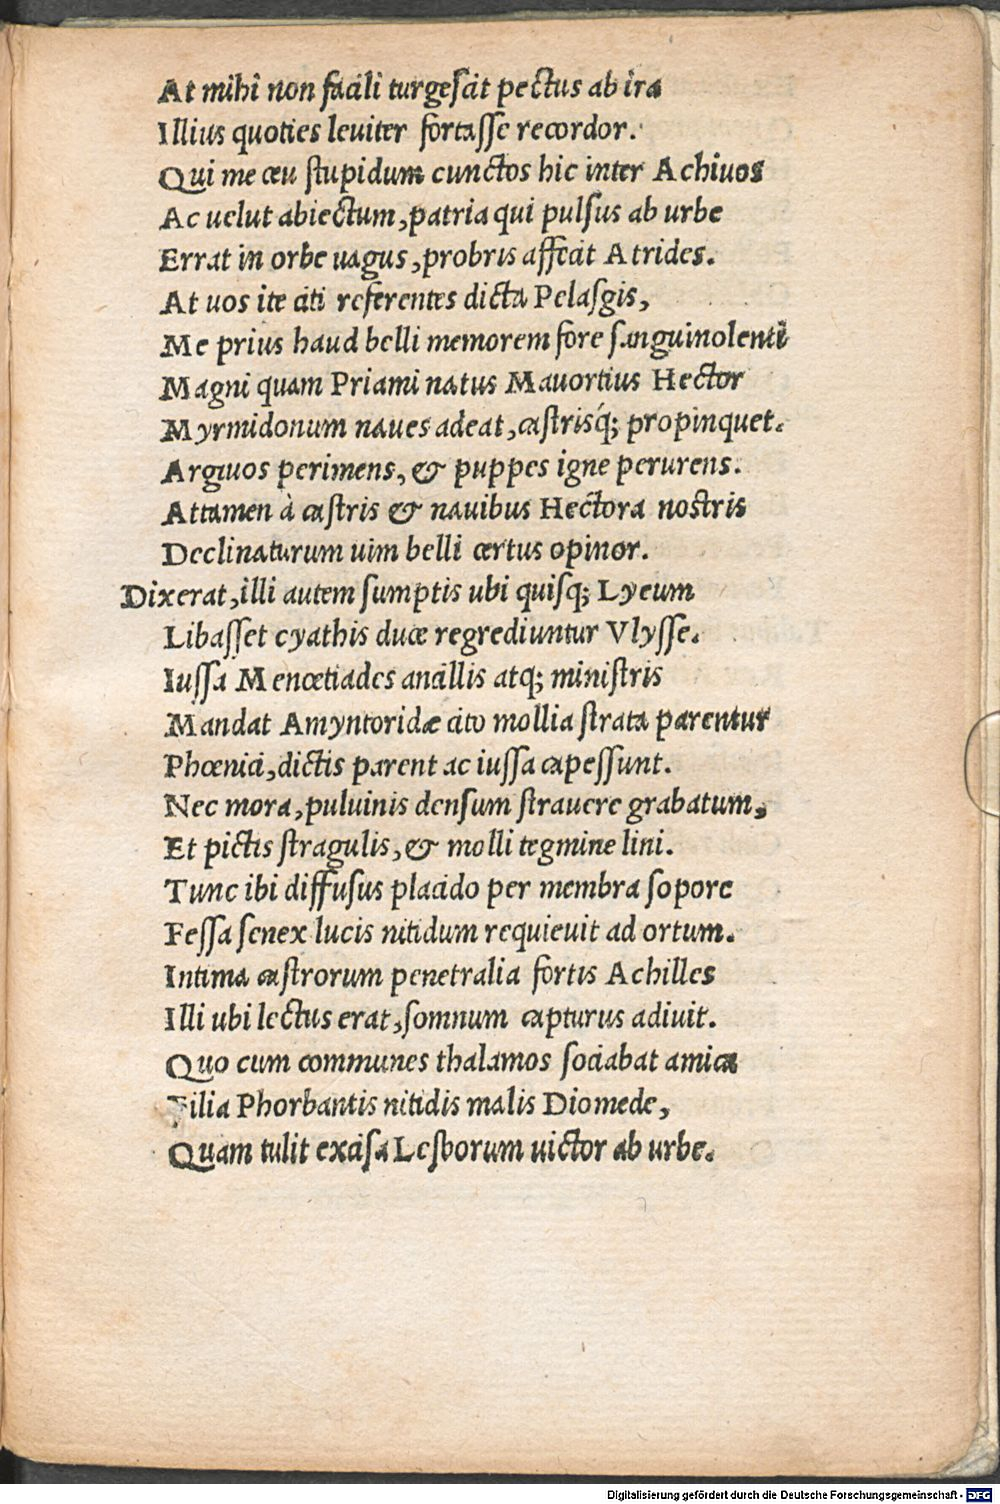 At mihi non facili turgescit pectus ab ira
Illius quoties leuiter fortasse recordor.
Qui me ceu stupidum cunctos hic inter Achiuos
Ac uelut abiectum, patria qui pulsus ab urbe
Errat in orbe uagus, probris affecit Atrides.
At uos ite citi referentes dicta Pelasgis,
Me prius haud belli memorem fore sanguinolenti
Magni quam Priami natus Mauortius Hector
Myrmidonum naues adeat, castrisq́; propinquet.
Argiuos perimens, & puppes igne perurens.
Attamen à castris & nauibus Hectora nostris
Declinaturum uim belli certus opinor.
Dixerat, illi autem sumptis ubi quisq; Lyeum
Libasset cyathis duce regrediuntur Vlysse.
Iussa Menœtiades ancillis atq; ministris
Mandat Amyntoridæ cito mollia strata parentur
Phœnici, dictis parent ac iussa capessunt.
Nec mora, puluinis densum strauere grabatum,
Et pictis stragulis, & molli tegmine lini.
Tunc ibi diffusus placido per membra sopore
Fessa senex lucis nitidum requieuit ad ortum.
Intima castrorum penetralia fortis Achilles
Illi ubi lectus erat, somnum capturus adiuit.
Quo cum communes thalamos sociabat amica
Filia Phorbantis nitidis malis Diomede,
Quam tulit excisa Lesborum uictor ab urbe.
Digitalisierung gefördert durch die Deutsche Forschungsgemeinschaft - DFG